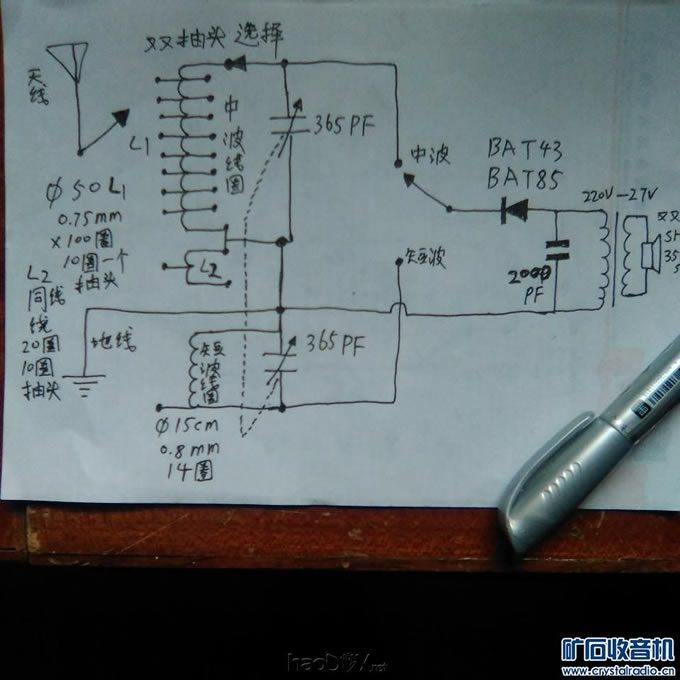 双刀抽头选择
天线
L1
中波线圈
365PF
中波
BAT43
BAT85
220V-27V
Φ50L1
0.75mm
×100圈
10圈一个
抽头
L2
L2
同线
绕
20圈
10圈
抽头
地线
短波
2000
PF
短波线圈
365PF
Φ15cm
0.8mm
14圈
haoDIY.net
矿石收音机
www.crystalradio.cn